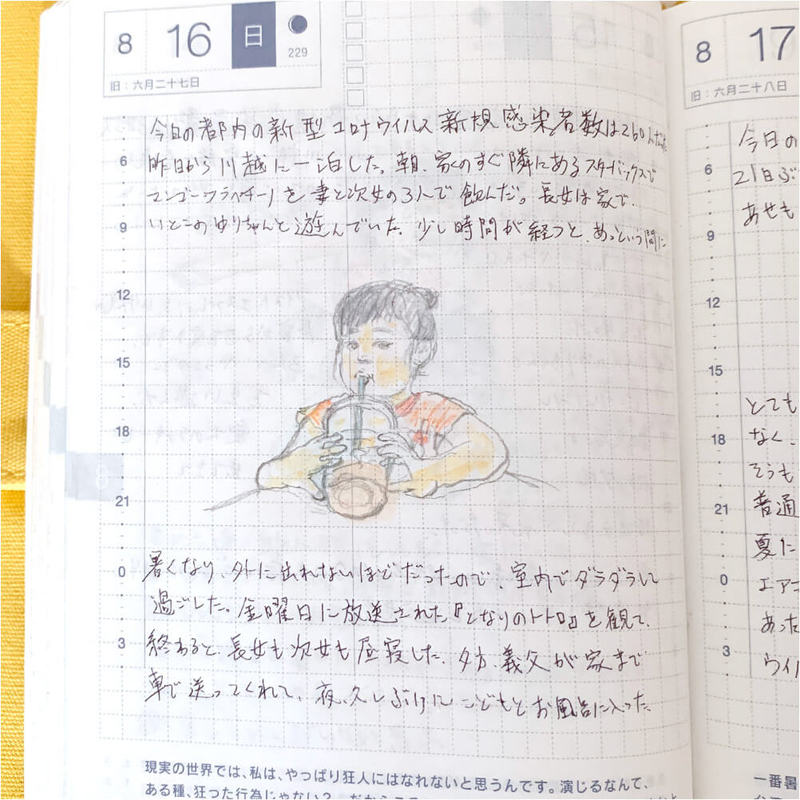 8 16 日
229
旧：六月二十七日
今日の都内の新型コロナウイルス新規感染者数は260人だった
昨日から川越に一泊した。朝、家のすぐ隣にあるスターバックスで
マンゴーフラペチーノを妻と次女の3人で飲んだ。長女は家で、
いとこのゆりちゃんと遊んでいた。少し時間が経つと、あっという間に
6
9
12
15
18
21
0
3
暑くなり、外に出れないほどだったので、室内でダラダラして
過ごした。金曜日に放送された『となりのトトロ』を観て、
終わると、長女も次女も昼寝した。夕方、義父が家まで
車で送ってくれて、夜、久しぶりにこどもとお風呂に入った。
現実の世界では、私は、やっぱり狂人にはなれないと思うんです。演じるなんて、
ある種、狂った行為じゃない？
8 17
旧：六月二十八日
今日の
21日ぶ
あせも
とても
なく、
そうも
普通
夏た
エアコ
あった
ウイル
6
9
12
15
18
21
0
3
一番暑